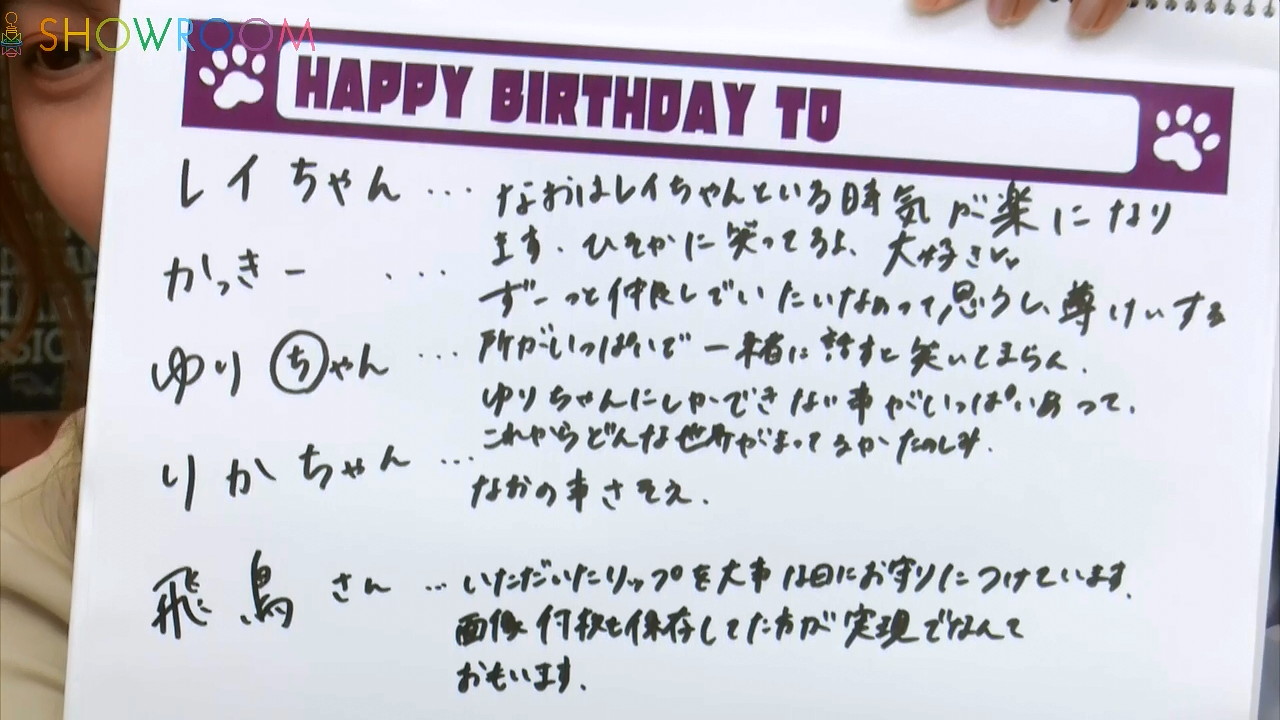 SHOWROOM
HAPPY BIRTHDAY TO
レイちゃん ... なおはレイちゃんといる時気が楽になり
ます. ひそかに笑ってるよ、大好き♡♡
かっきー ... ずーっと仲良しでいたいなぁって思うし、尊けいする
所がいっぱいで一緒に話すと笑い止まらん.
ゆりちゃん ... ゆりちゃんにしかできない事がいっぱいあって.
これからどんな世界がまってるかたのしみ.
りかちゃん ... なおの事さそえ.
飛鳥さん ... いただいたリップを大事な日にお守りにつけています.
画像何枚も保存してた方が実現でなんて
おもいます.